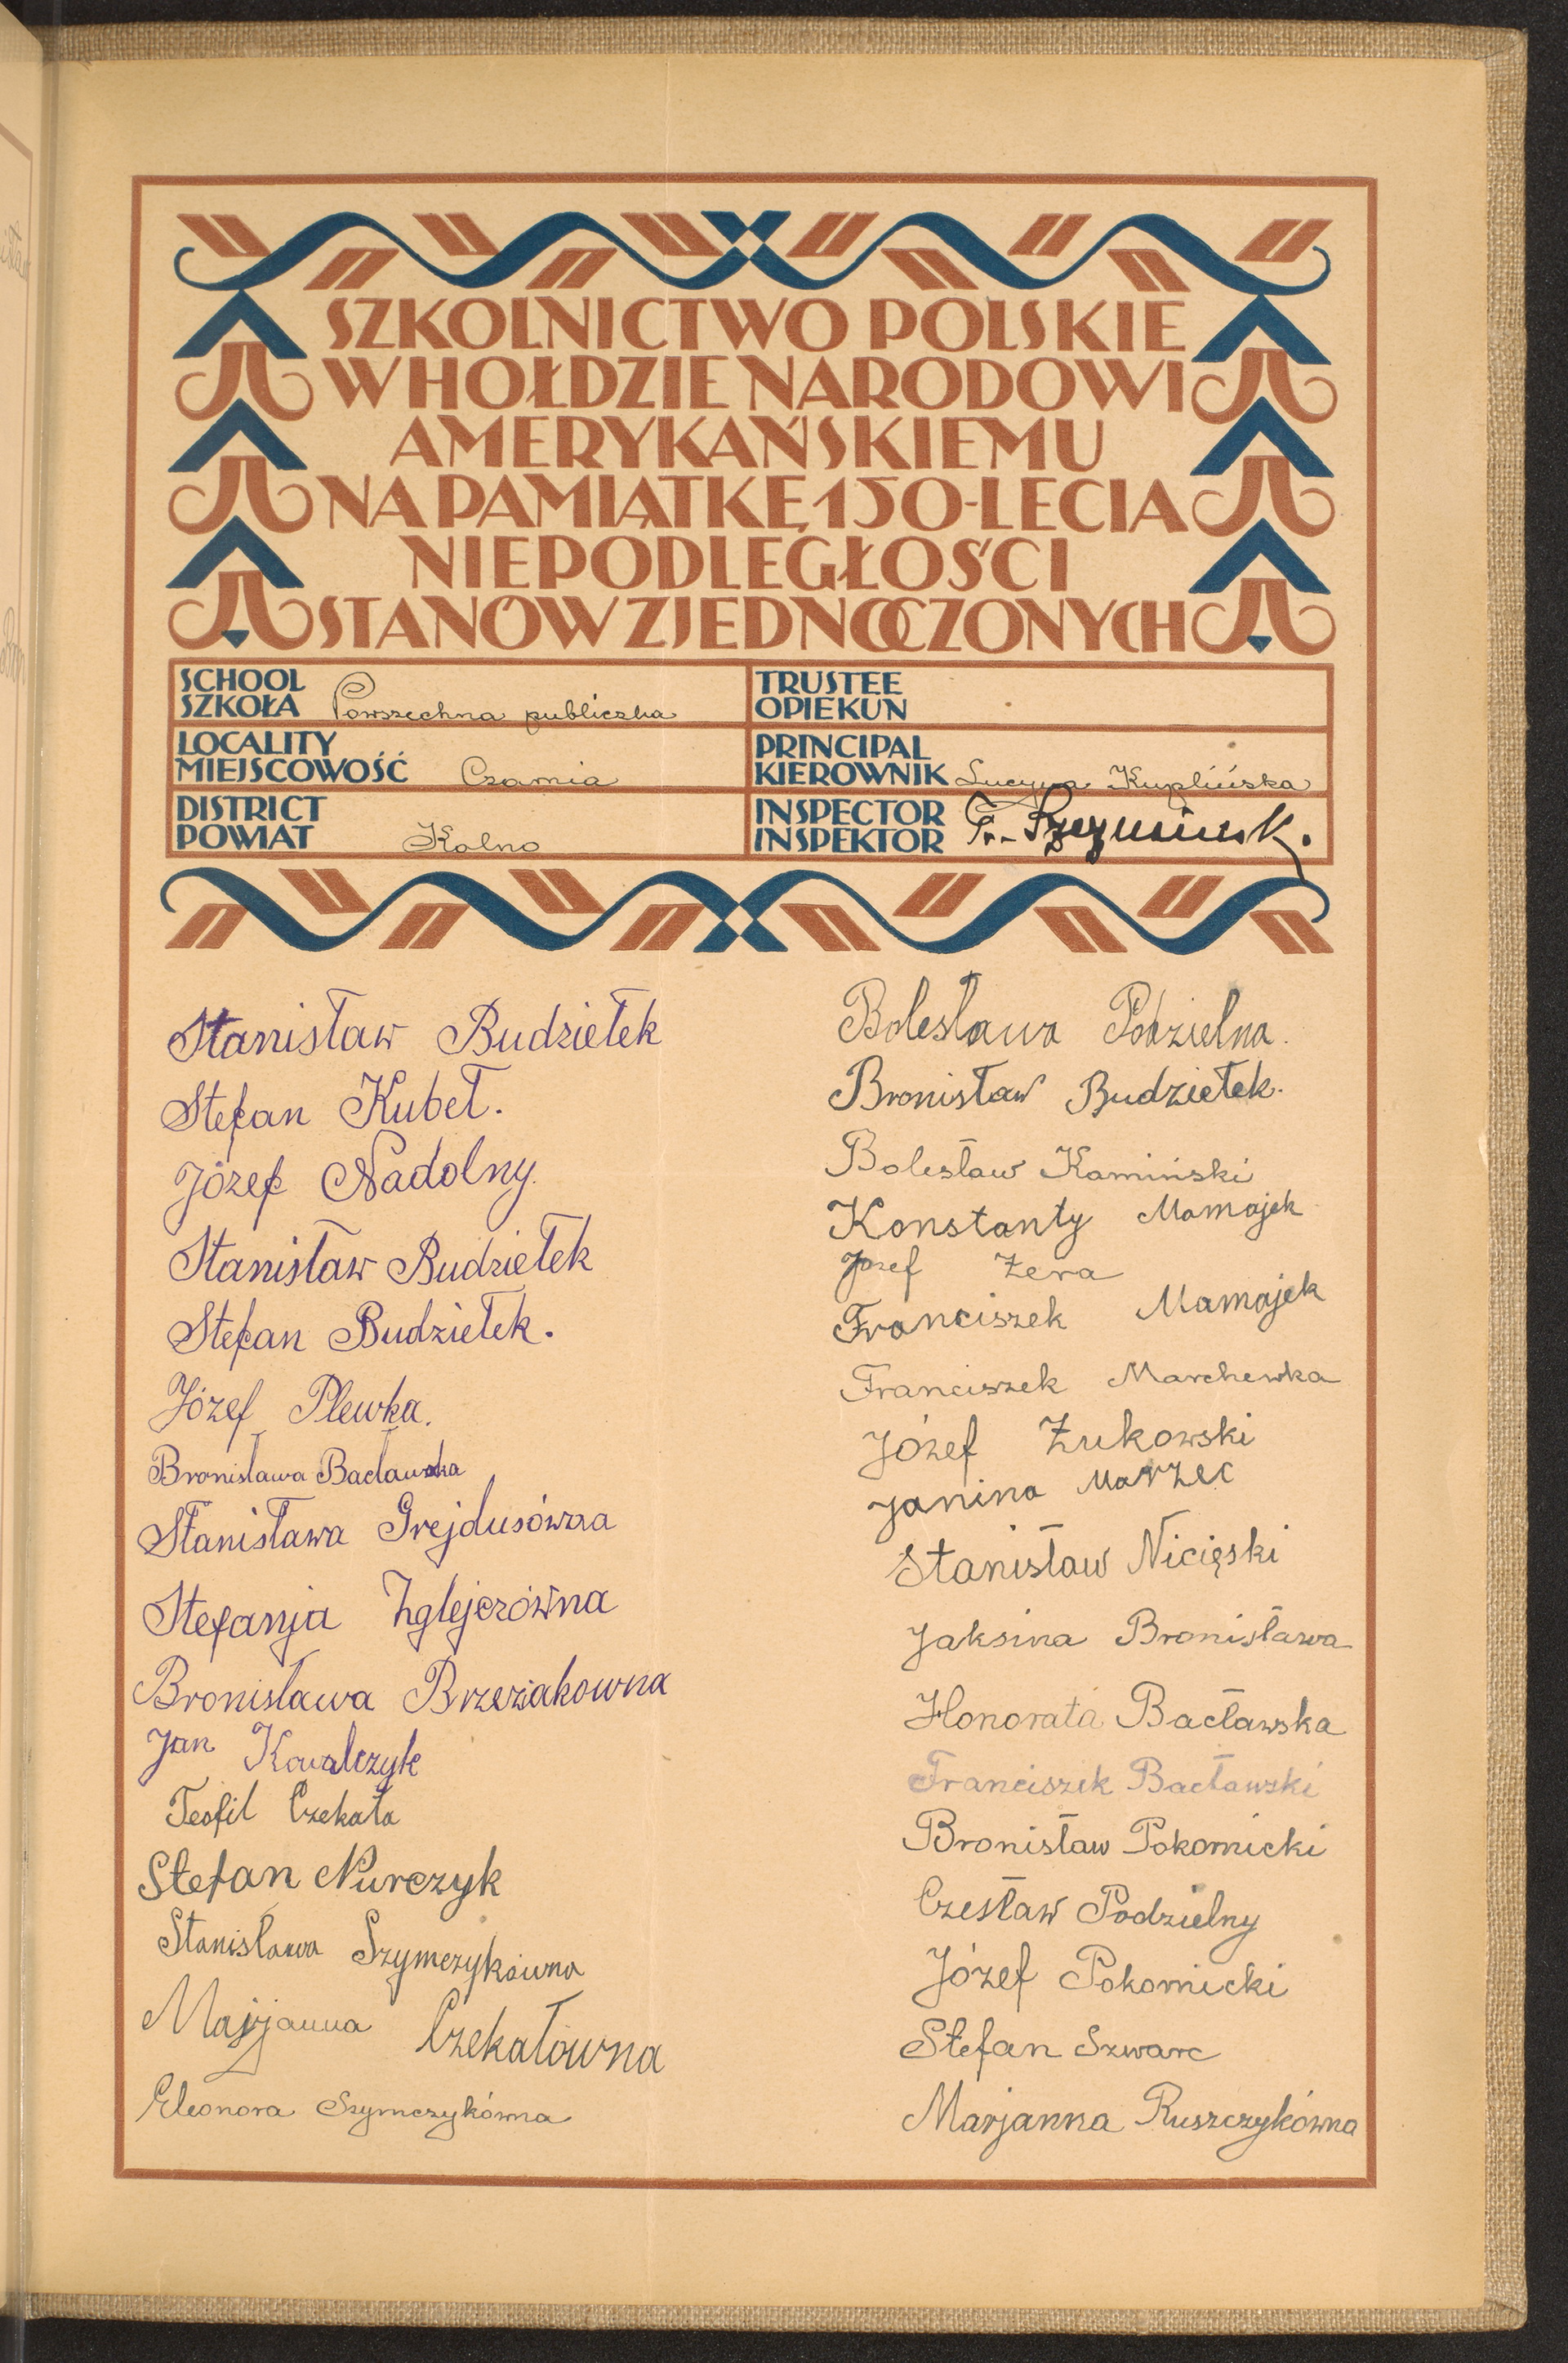 SZKOLNICTWO POLSKIE
W HOŁDZIE NARODOWI
AMERYKAŃSKIEMU
NA PAMIĄTKĘ 150-LECIA
NIEPODLEGŁOŚCI
STANÓW ZJEDNOCZONYCH
SCHOOL
SZKOŁA Powszechna publiczna
TRUSTEE
OPIEKUN
LOCALITY
MIEJSCOWOŚĆ Czarnia
PRINCIPAL
KIEROWNIK Lucyna Kuplińska
DISTRICT
POWIAT Kolno
INSPECTOR
INSPEKTOR Fr.
Stanisław Budziełek
Stefan Kubeł.
Józef Nadolny.
Stanisław Budziełek
Stefan Budziełek.
Józef Plewka.
Bronisława Bacławska
Stanisława Grejdusówna
Stefanja Zglejcrówna
Bronisława Brzeziakowna
Jan Kowalczyk
Teofil Czekała
Stefan Nurczyk
Stanisława Szymczykówna
Marjanna Czekałowna
Eleonora Szymczykówna
Bolesława Podzielna.
Bronisław Budziełek.
Bolesław Kamiński
Konstanty Mamajek
Józef Żera
Franciszek Mamajek
Franciszek Marchewka
Józef Żukowski
Janina Marzec
Stanisław Nicięski
Jaksina Bronisława
Honorata Bacławska
Franciszek Bacławski
Bronisław Pokornicki
Czesław Podzielny
Józef Pokornicki
Stefan Szwarc
Marjanna Ruszczykówna